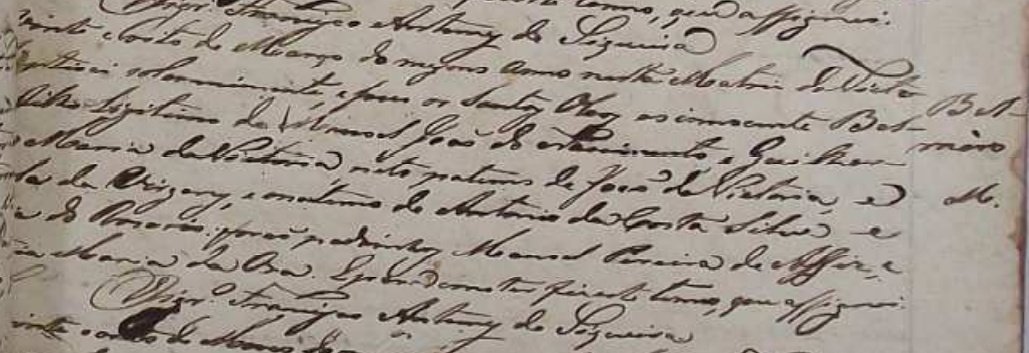 termo, que assignei.
Vigrº Francisco Antunes de Siqueira
vinte e oito de Março do mesmo anno nesta Matriz da Victa
baptisei solemnemente, e pus os Santos Oleos ao innocente Bel-
filho legitimo de Manoel João do Nascimento, e Guilher-
Maria da Victoria neto paterno de João da Victoria, e
da Virgens, e materno de Antonio da Costa Silva e
do Rosario. forão padrinhos Manoel Pereira de
Maria da E para constar fiz este termo, que assignei.
Vigrº Francisco Antunes de Siqueira
vinte e oito de Março do
Bel-
miro
M.